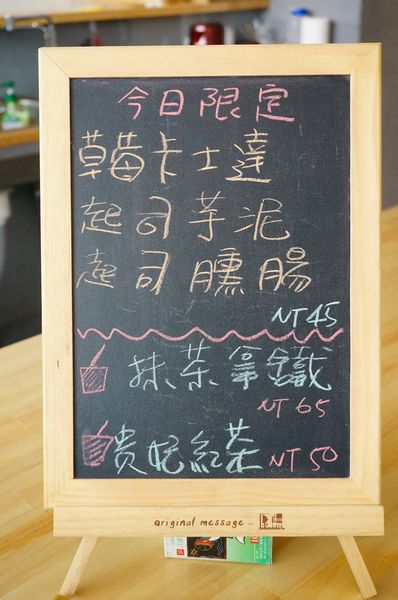 今日限定
草莓卡士達
起司芋泥
起司燻腸
NT45
抹茶拿鐵
NT 65
貴妃紅茶 NT 50
original message..